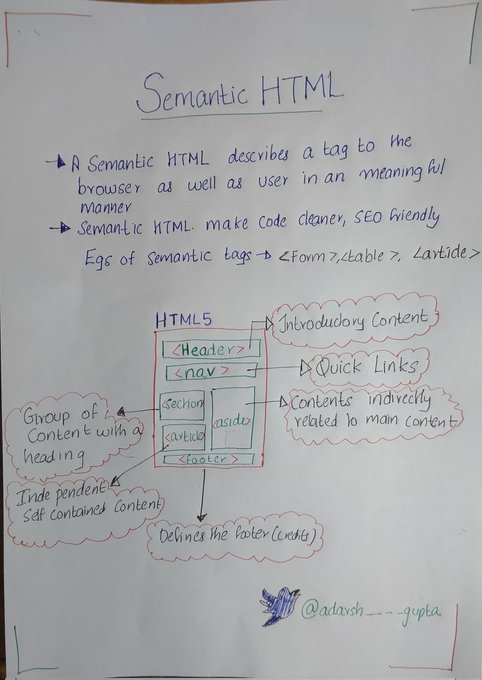 Semantic HTML
A Semantic HTML describes a tag to the
browser as well as user in an meaningful
manner
Semantic HTML. make code cleaner, SEO friendly
Egs of Semantic tags → <Form>,<table>, <article>
HTML5
<Header>
<nav>
<section>
<aside>
<article>
<footer>
Introductory Content
Quick Links
Contents indirectly
related to main content
Group of
Content with a
heading
Independent
Self contained Content
Defines the footer (credits)
@adarsh____gupta